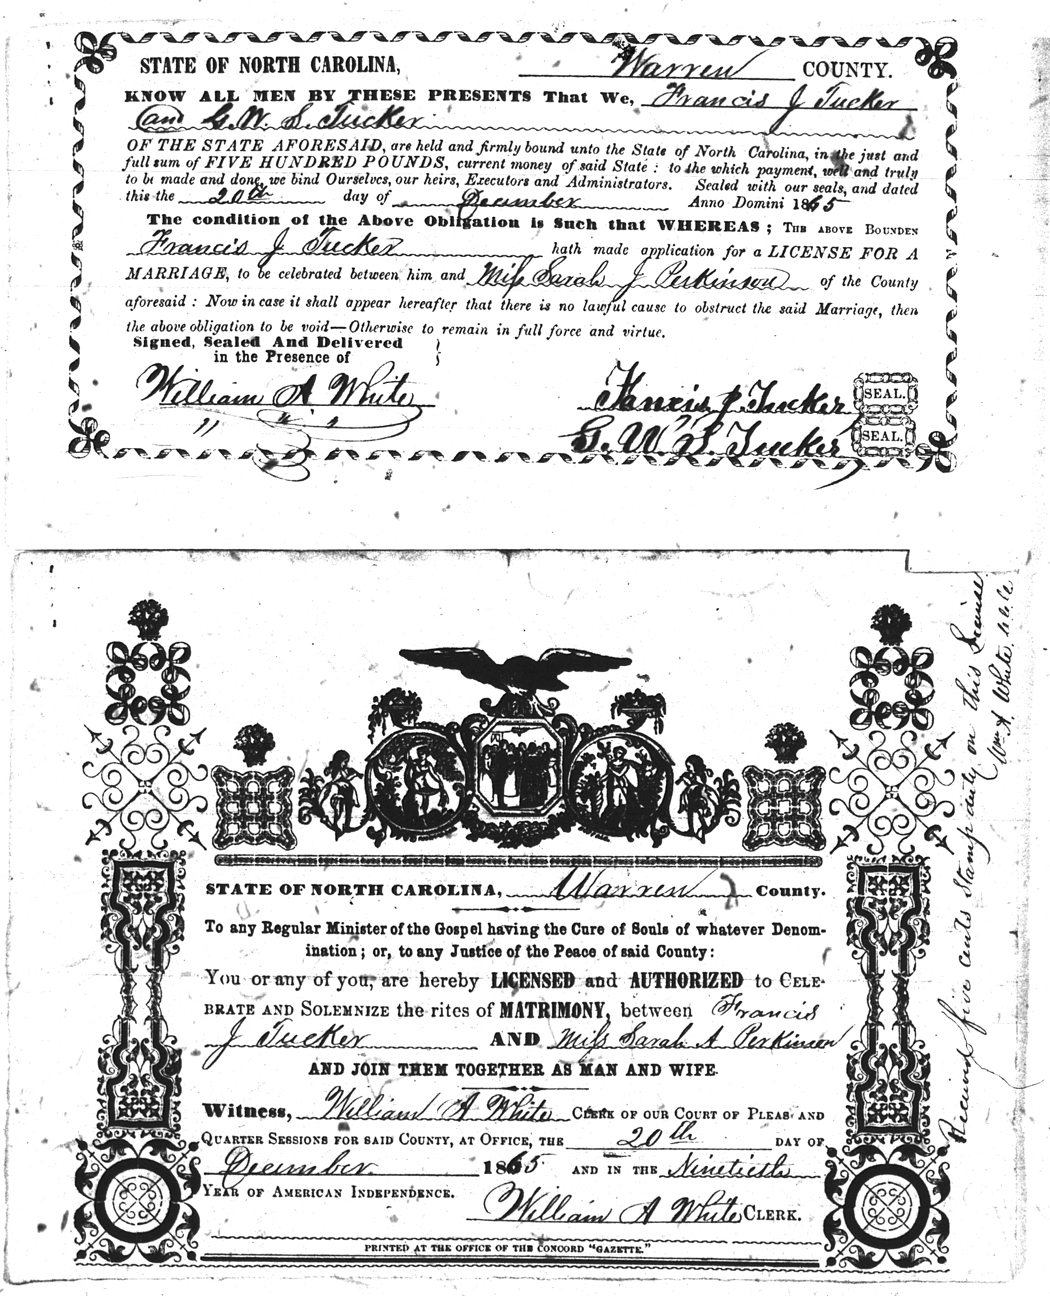 STATE OF NORTH CAROLINA, Warren COUNTY.
KNOW ALL MEN BY THESE PRESENTS That We, Francis J Tucker
and G. W. S. Tucker
OF THE STATE AFORESAID, are held and firmly bound unto the State of North Carolina, in the just and
full sum of FIVE HUNDRED POUNDS, current money of said State : to the which payment, well and truly
to be made and done, we bind Ourselves, our heirs, Executors and Administrators. Sealed with our seals, and dated
this the 20th day of December Anno Domini 1865
The condition of the Above Obligation is Such that WHEREAS ; THE ABOVE BOUNDEN
Francis J Tucker hath made application for a LICENSE FOR A
MARRIAGE, to be celebrated between him and Miss Sarah J Perkinson of the County
aforesaid : Now in case it shall appear hereafter that there is no lawful cause to obstruct the said Marriage, then
the above obligation to be void—Otherwise to remain in full force and virtue.
Signed, Sealed And Delivered
in the Presence of
William A White
Francis J Tucker SEAL.
G. W. S. Tucker SEAL.
STATE OF NORTH CAROLINA, Warren County.
To any Regular Minister of the Gospel having the Cure of Souls of whatever Denom-
ination ; or, to any Justice of the Peace of said County :
You or any of you, are hereby LICENSED and AUTHORIZED to CELE-
BRATE AND SOLEMNIZE the rites of MATRIMONY, between Francis
J Tucker AND Miss Sarah A Perkinson
AND JOIN THEM TOGETHER AS MAN AND WIFE.
Witness, William A White CLERK OF OUR COURT OF PLEAS AND
QUARTER SESSIONS FOR SAID COUNTY, AT OFFICE, THE 20th DAY OF
December 1865 AND IN THE Ninetieth
YEAR OF AMERICAN INDEPENDENCE.
William A White CLERK.
PRINTED AT THE OFFICE OF THE CONCORD "GAZETTE."
Received five cents Stamp duty on this License
Wm A White